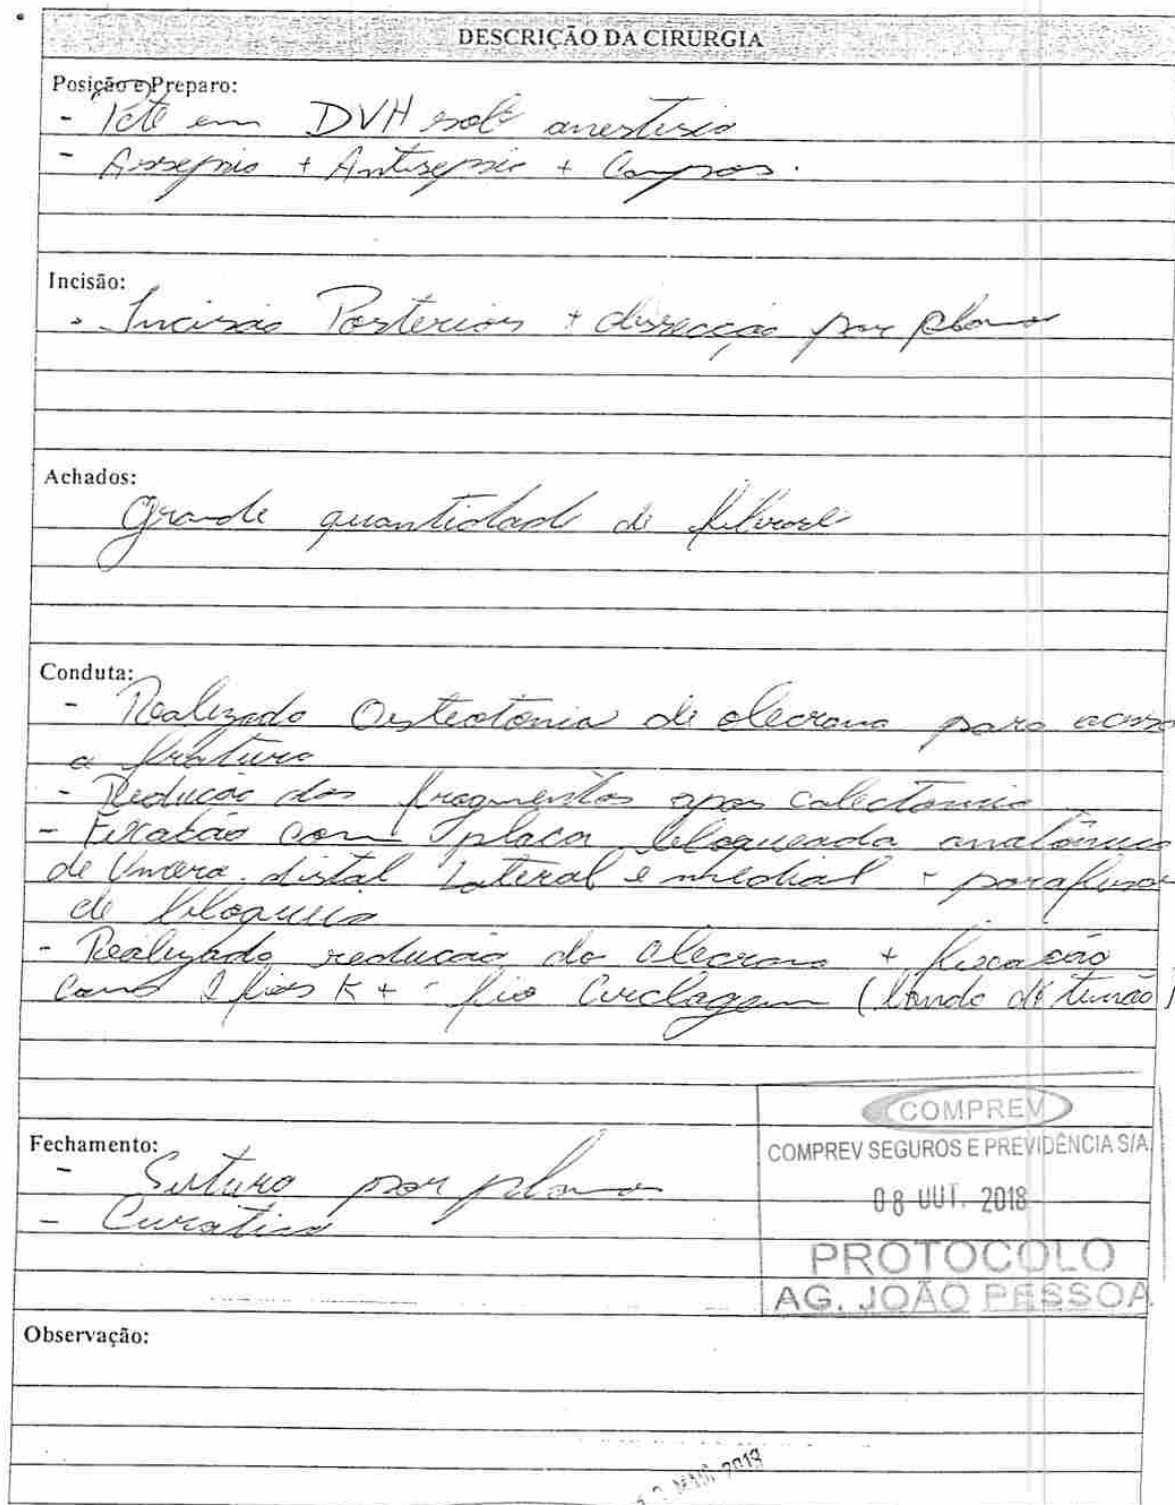 DESCRIÇÃO DA CIRURGIA
Posição e Preparo:
- Pcte em DVH sob anestesia
- Assepsia + Antisepsia + Campos.
Incisão:
- Incisão Posterior + dissecção por planos
Achados:
Grande quantidade de fibrose
Conduta:
- Realizado Osteotomia de olecrano para acesso
a fratura
- Redução dos fragmentos apos calectomia
- Fixação com placa bloqueada anatômica
de Umero distal Lateral e medial + parafusos
de bloqueio
- Realizado redução do olecrano + fixação
com 2 fios K + fio Cerclagem (banda de tensão)
COMPREV
COMPREV SEGUROS E PREVIDÊNCIA S/A
08 OUT. 2018
PROTOCOLO
AG. JOÃO PESSOA
Fechamento:
- Sutura por planos
- Curativo
Observação: